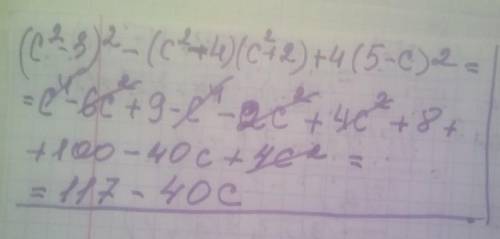 (c²-3)² - (c²-4)(c²+2) + 4(5-c)² =
= c⁴ - 6c² + 9 - c⁴ - 2c² + 4c² + 8 +
+ 100 - 40c + 4c² =
= 117 - 40c